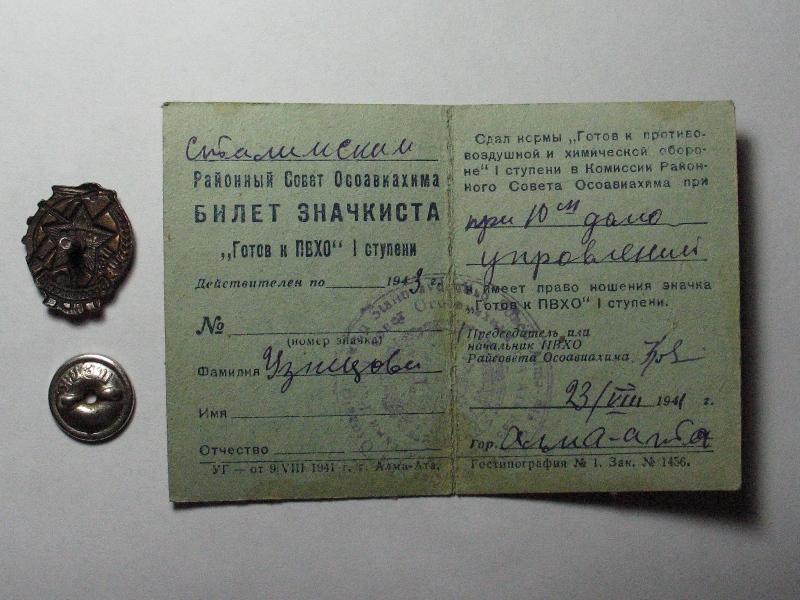 Сталинский
Районный Совет Осоавиахима
БИЛЕТ ЗНАЧКИСТА
„Готов к ПВХО“ I ступени
Действителен по 1943 г.
№
(номер значка)
Фамилия
Имя
Отчество
УГ — от 9/VIII 1941 г. г. Алма-Ата.
Сдал нормы „Готов к противо-
воздушной и химической оборо-
не“ I ступени в Комиссии Район-
ного Совета Осоавиахима при
при 10 дало
управлений
и имеет право ношения значка
„Готов к ПВХО“ I ступени.
Председатель или
начальник ПВХО
Райсовета Осоавиахима
23/VIII 1941 г.
Гор. Алма-ата
Гостипография № 1. Зак. № 1456.